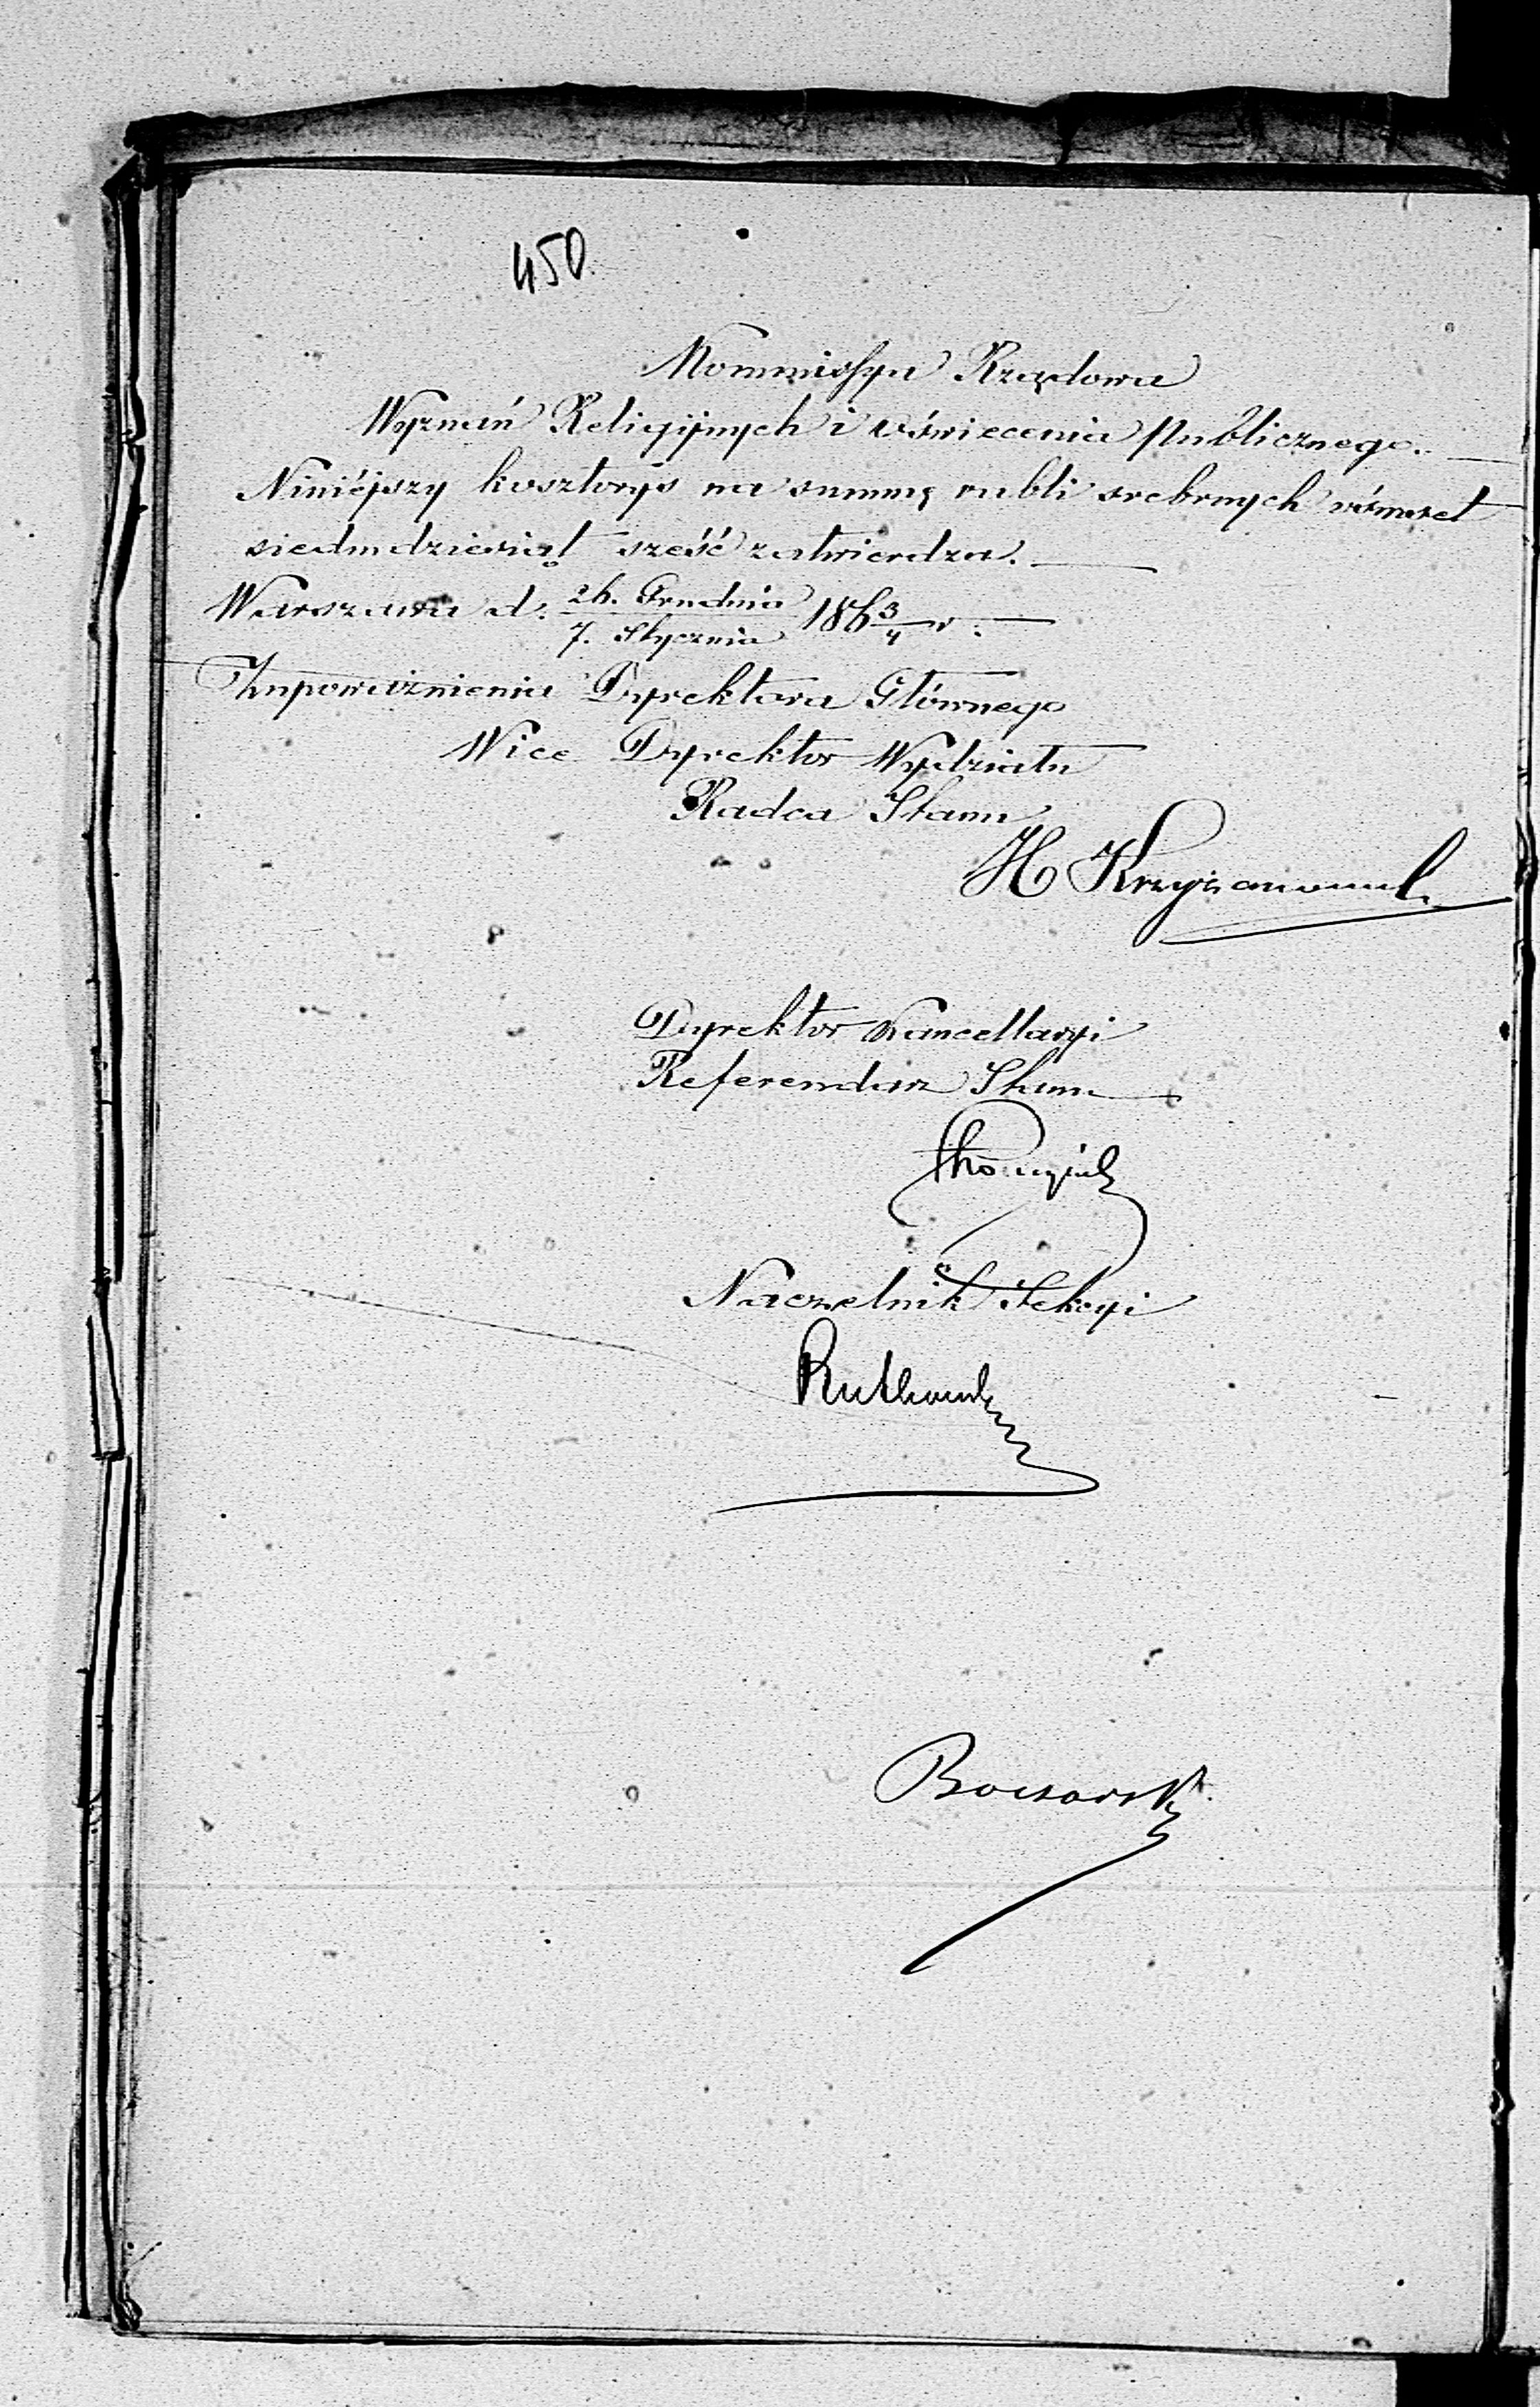 450.
Kommissya Rządowa
Wyznań Religijnych i Oświecenia Publicznego.
Niniéjszy kosztorys na summę rubli srebrnych ośmset
siedmdziesiąt sześć zatwierdza.
Warszawa d. 26. Grudnia / 7. Stycznia 1863/4 r.
Z upoważnienia Dyrektora Głównego
Wice Dyrektor Wydziału
Radca Stanu
H Krzyżanowsk
Dyrektor Kancellaryi
Referendarz Stanu
Naczelnik Sekcyi
Rutkowsk